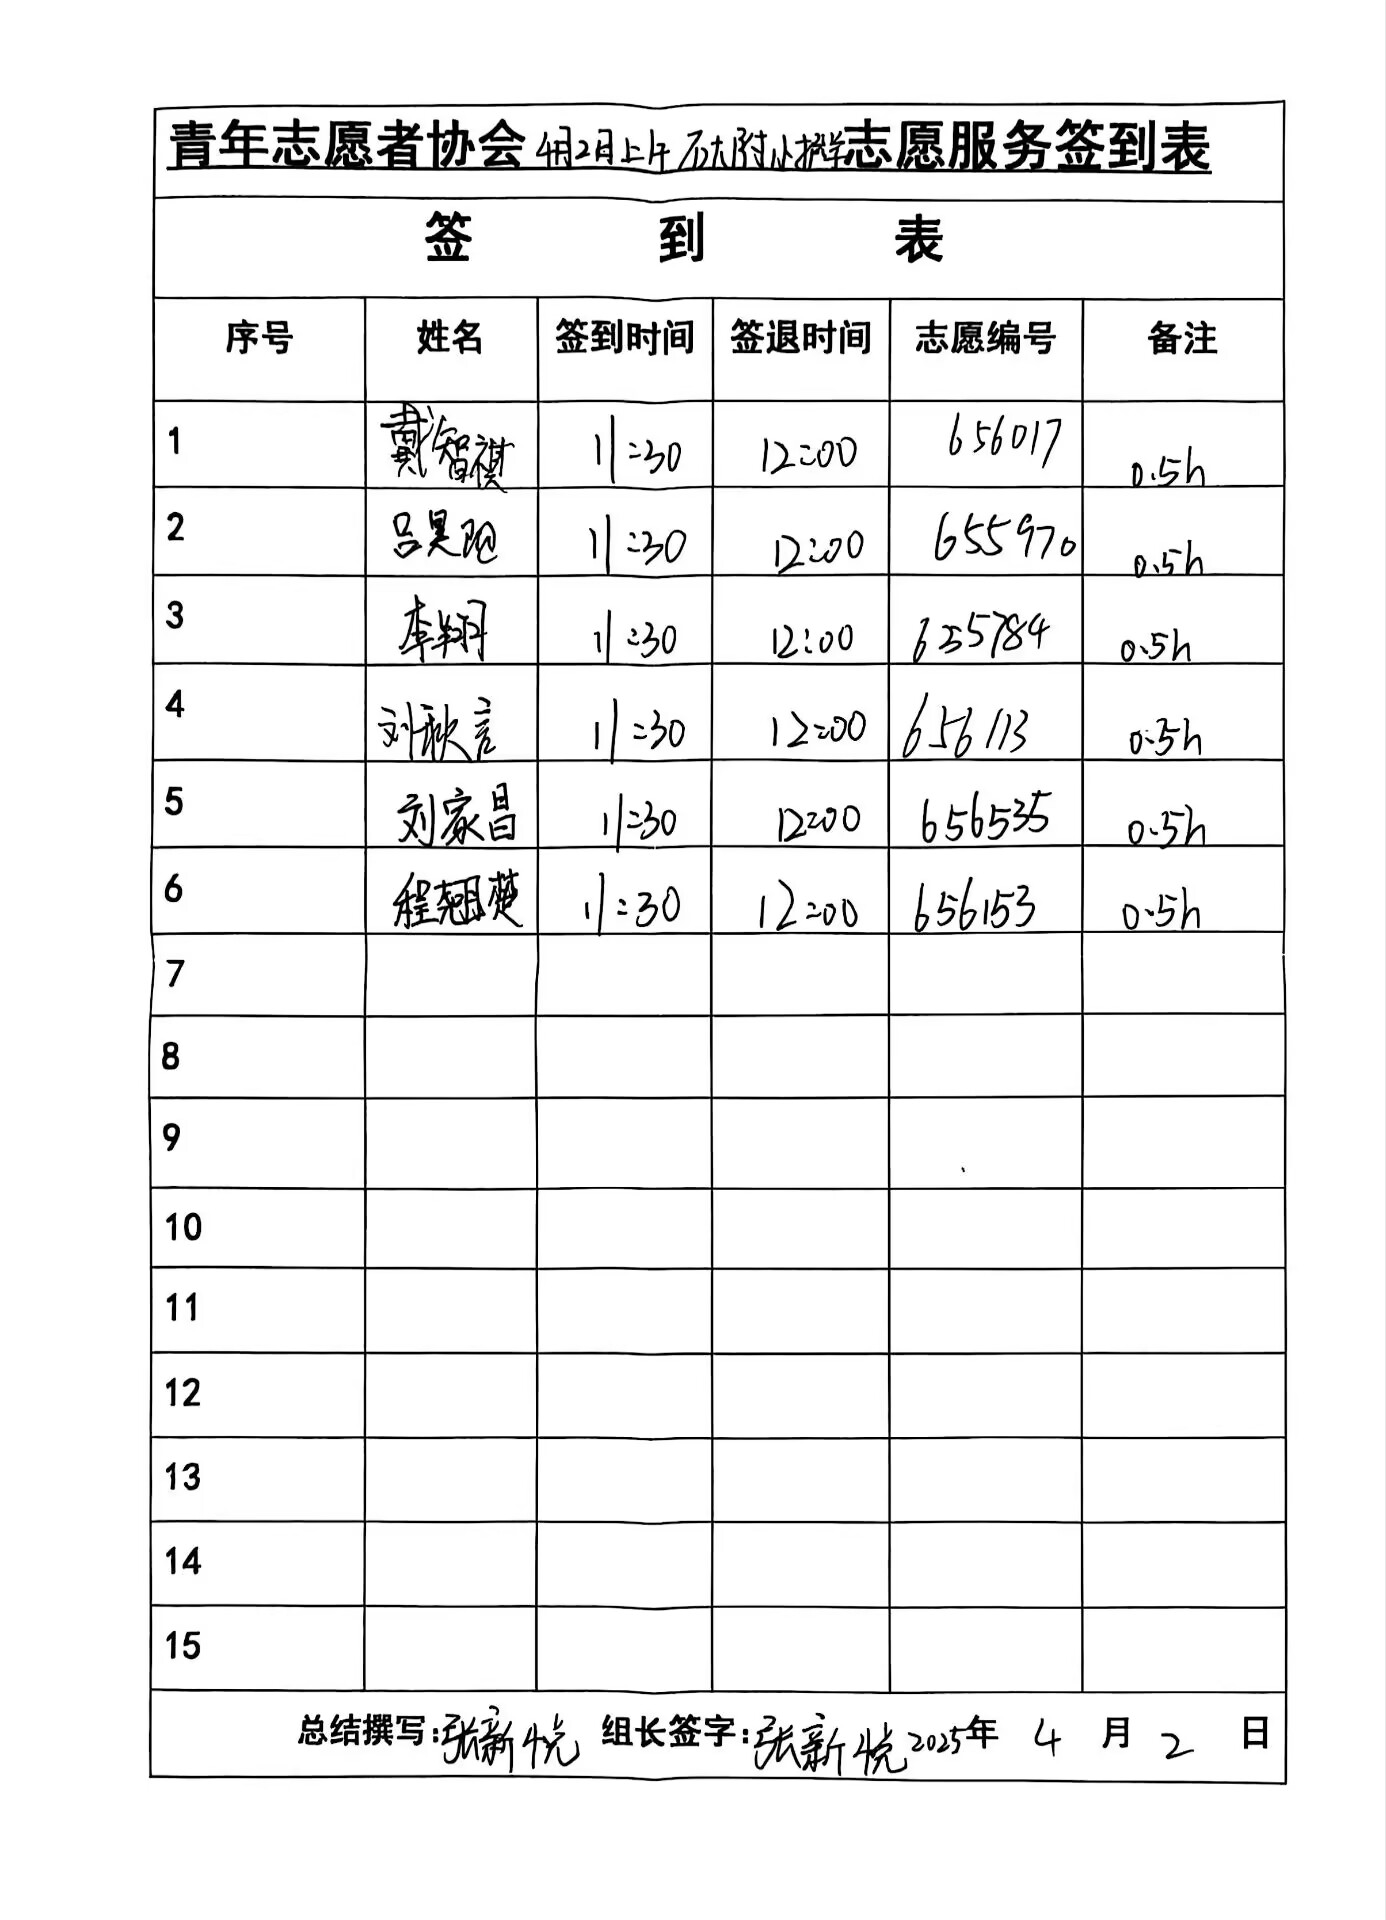 青年志愿者协会4月2日上午石大附小护学志愿服务签到表
签 到 表
序号 姓名 签到时间 签退时间 志愿编号 备注
1 戴智祺 11:30 12:00 656017 0.5h
2 吕昊 11:30 12:00 655970 0.5h
3 李翔 11:30 12:00 655784 0.5h
4 刘秋言 11:30 12:00 656113 0.5h
5 刘家昌 11:30 12:00 656535 0.5h
6 程翘楚 11:30 12:00 656153 0.5h
7
8
9
10
11
12
13
14
15
总结撰写:张新悦 组长签字:张新悦 2025年 4 月 2 日